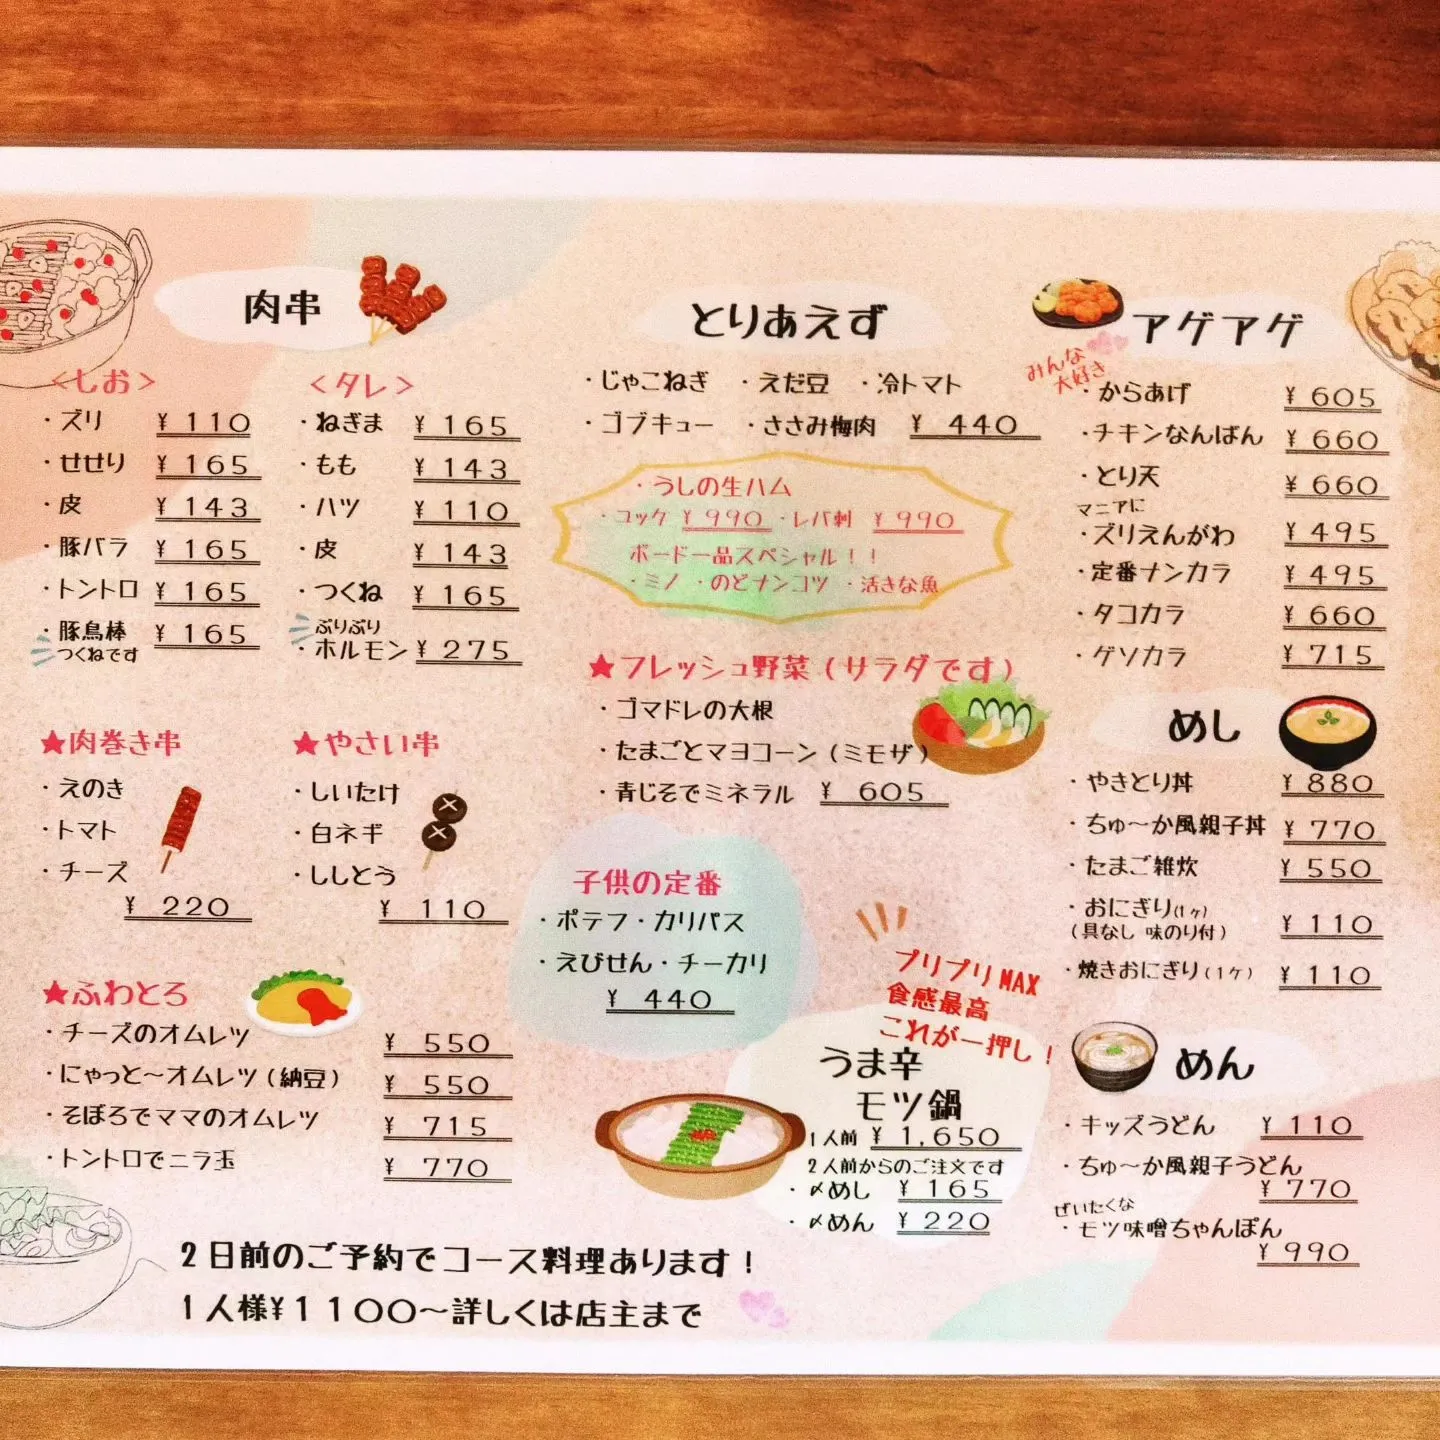 肉串
<しお>
・ズリ ¥110
・せせり ¥165
・皮 ¥143
・豚バラ ¥165
・トントロ ¥165
・豚鳥棒 ¥165
つくねです
<タレ>
・ねぎま ¥165
・もも ¥143
・ハツ ¥110
・皮 ¥143
・つくね ¥165
ぷりぷり
・ホルモン ¥275
★肉巻き串
・えのき
・トマト
・チーズ
¥220
★やさい串
・しいたけ
・白ネギ
・ししとう
¥110
★ふわとろ
・チーズのオムレツ ¥550
・にゃっと〜オムレツ(納豆) ¥550
・そぼろでママのオムレツ ¥715
・トントロでニラ玉 ¥770
とりあえず
・じゃこねぎ ・えだ豆 ・冷トマト
・ゴブキュー ・ささみ梅肉 ¥440
・うしの生ハム
・コック ¥990 ・レバ刺 ¥990
ボード一品スペシャル！！
・ミノ ・のどナンコツ ・活きな魚
★フレッシュ野菜(サラダです)
・ゴマドレの大根
・たまごとマヨコーン(ミモザ)
・青じそでミネラル ¥605
子供の定番
・ポテフ・カリパス
・えびせん・チーカリ
¥440
プリプリMAX
食感最高
これが一押し！
うま辛
モツ鍋
1人前 ¥1,650
2人前からのご注文です
・〆めし ¥165
・〆めん ¥220
アゲアゲ
みんな
大好き
・からあげ ¥605
・チキンなんばん ¥660
・とり天 ¥660
マニアに
・ズリえんがわ ¥495
・定番ナンカラ ¥495
・タコカラ ¥660
・ゲソカラ ¥715
めし
・やきとり丼 ¥880
・ちゅ〜か風親子丼 ¥770
・たまご雑炊 ¥550
・おにぎり(1ヶ)
(具なし 味のり付) ¥110
・焼きおにぎり(1ケ) ¥110
めん
・キッズうどん ¥110
・ちゅ〜か風親子うどん
¥770
ぜいたくな
・モツ味噌ちゃんぽん
¥990
2日前のご予約でコース料理あります！
1人様¥1100〜詳しくは店主まで